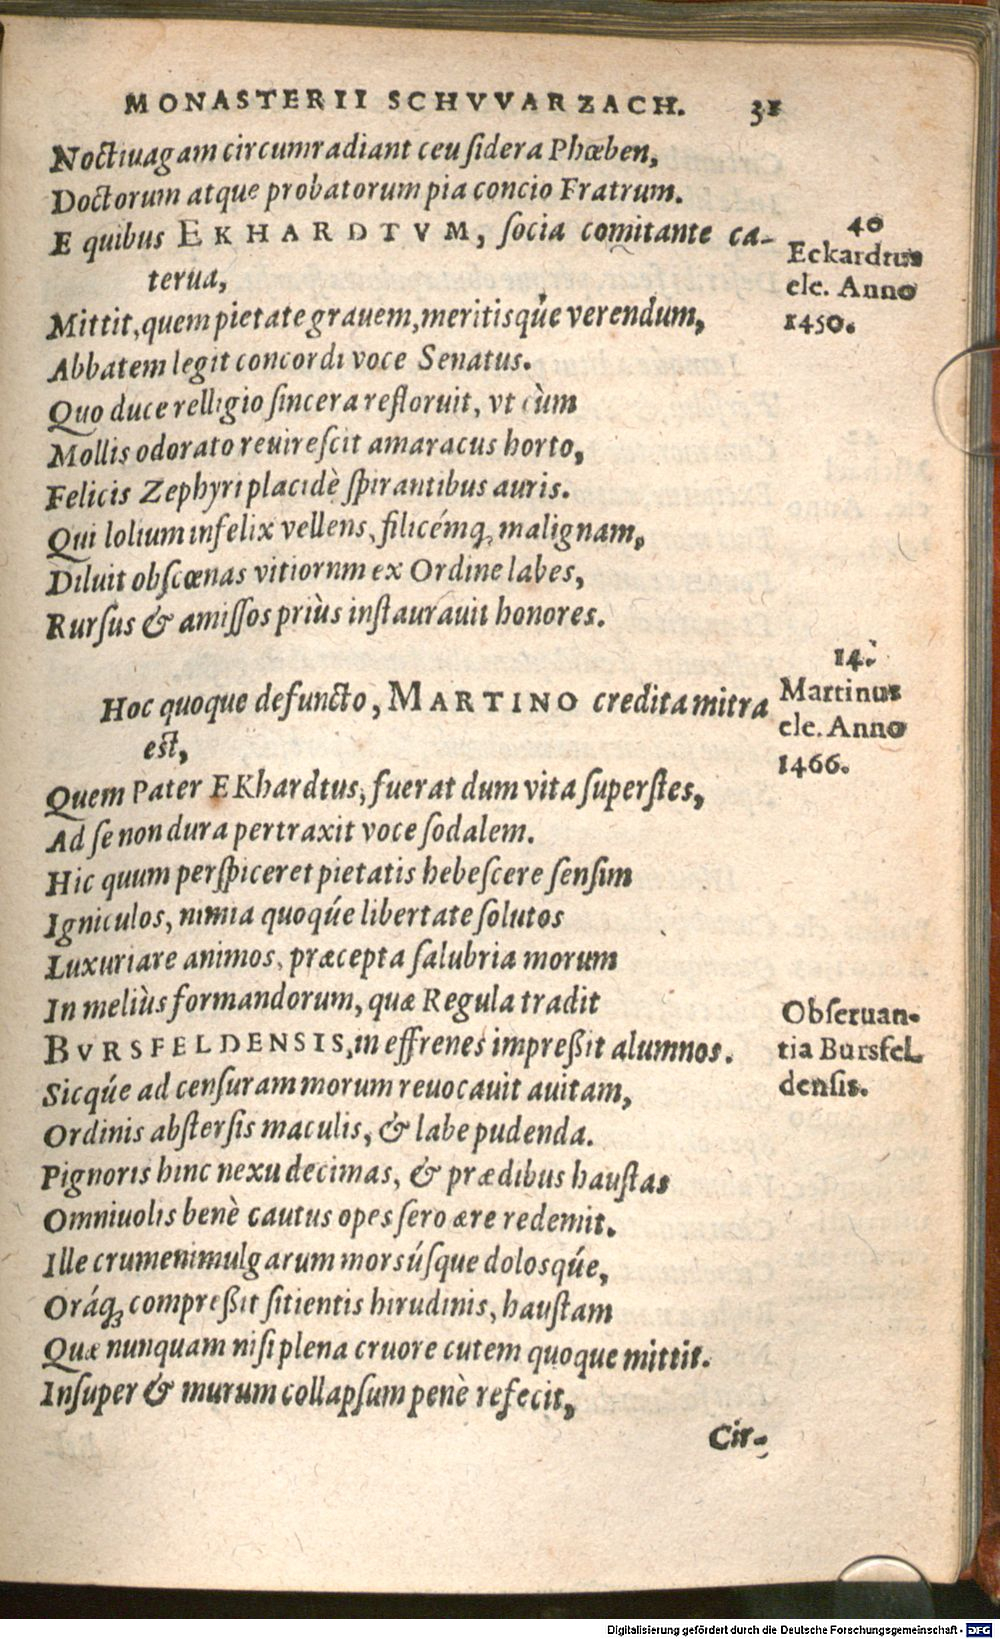 MONASTERII SCHVVARZACH. 31
Noctiuagam circumradiant ceu sidera Phœben,
Doctorum atque probatorum pia concio Fratrum.
E quibus EKHARDTVM, socia comitante ca-
terua,
Mittit, quem pietate grauem, meritisqúe verendum,
Abbatem legit concordi voce Senatus.
Quo duce relligio sincera refloruit, vt cùm
Mollis odorato reuirescit amaracus horto,
Felicis Zephyri placidè spirantibus auris.
Qui lolium infelix vellens, filicémq; malignam,
Diluit obscœnas vitiornm ex Ordine labes,
Rursus & amissos priùs instaurauit honores.
40
Eckardtus
ele. Anno
1450.
Hoc quoque defuncto, MARTINO credita mitra
est,
Quem Pater EKhardtus, fuerat dum vita superstes,
Ad se non dura pertraxit voce sodalem.
Hic quum perspiceret pietatis hebescere sensim
Igniculos, nimia quoqúe libertate solutos
Luxuriare animos, præcepta salubria morum
In meliùs formandorum, quæ Regula tradit
BVRSFELDENSIS, in effrenes impreßit alumnos.
Sicqúe ad censuram morum reuocauit auitam,
Ordinis abstersis maculis, & labe pudenda.
Pignoris hinc nexu decimas, & prædibus haustas
Omniuolis benè cautus opes sero ære redemit.
Ille crumenimulgarum morsúsque dolosqúe,
Oráq; compreßit sitientis hirudinis, haustam
Quæ nunquam nisi plena cruore cutem quoque mittit.
Insuper & murum collapsum penè refecit,
14.
Martinus
ele. Anno
1466.
Obseruan-
tia Bursfel-
densis.
Cir-
Digitalisierung gefördert durch die Deutsche Forschungsgemeinschaft - DFG